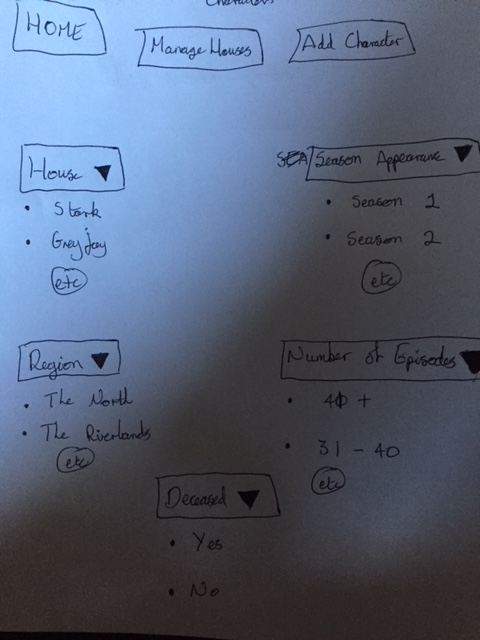 Characters
HOME
Manage Houses
Add Character
House
• Stark
• Greyjoy
etc
Season Appearance
• Season 1
• Season 2
etc
Region
• The North
• The Riverlands
etc
Number of Episodes
• 40 +
• 31 - 40
etc
Deceased
• Yes
• No